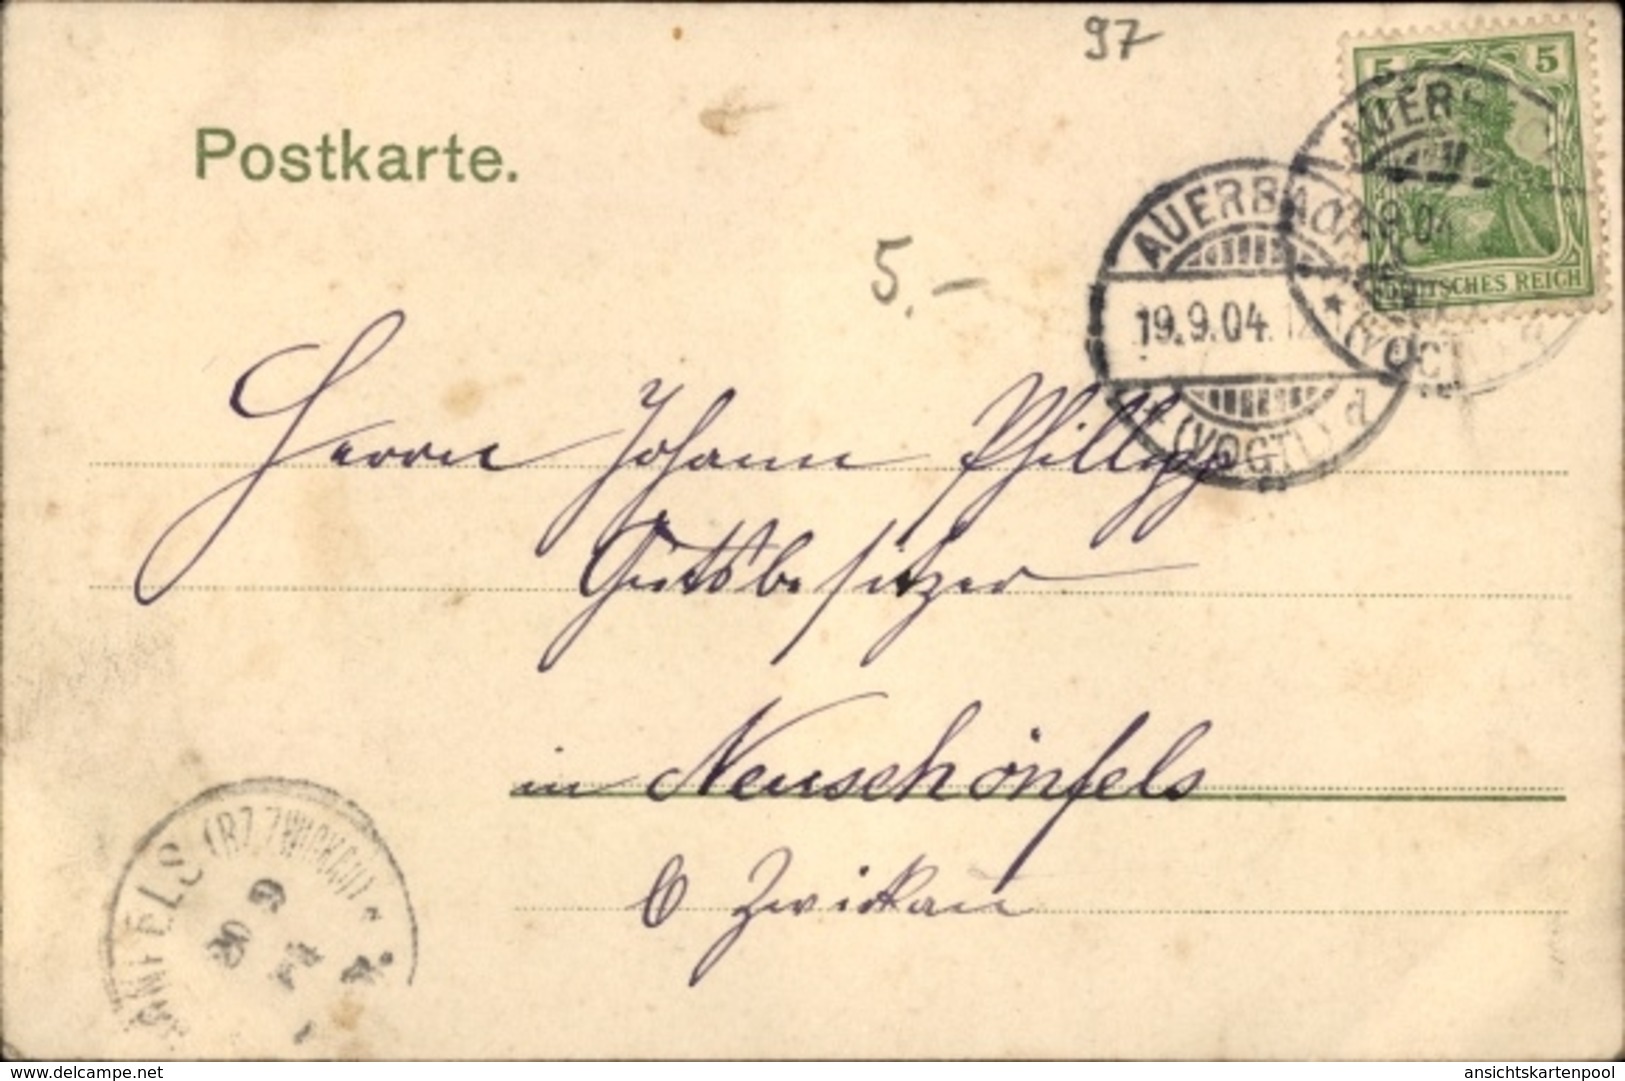 97
5 5
DEUTSCHES REICH
Postkarte.
5.-
AUERBACH
19.9.04.
(VOGTL) d
AUERB
9.04
* (VOGTL
Herrn Johann Phillipp
Gutsbesitzer
in Neuschönfels
b Zwickau
FELS (BZ. ZWICKAU)
20 9
4
www.delcampe.net
ansichtskartenpool